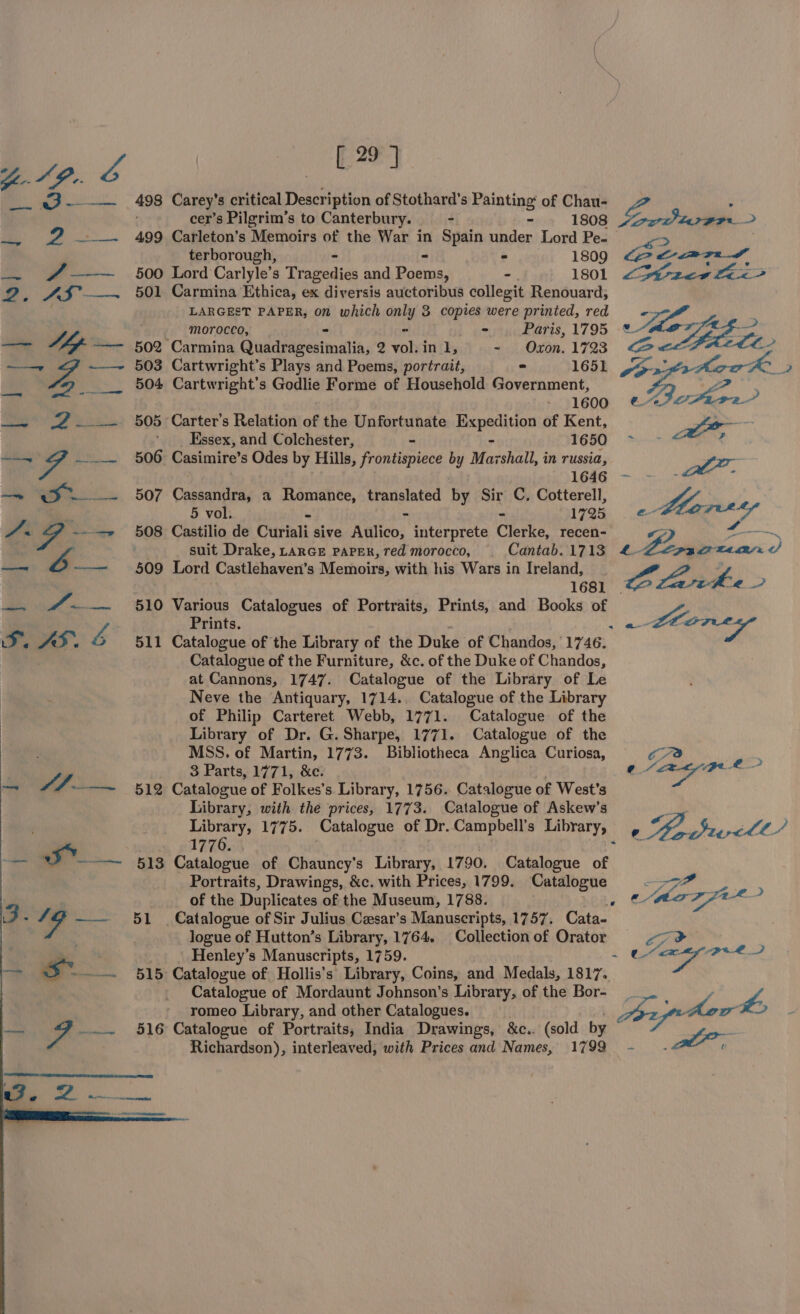 [ 29 ]
498 Carey's critical Description of Stothard's Painting of Chau-
cer's Pilgrim's to Canterbury. - - 1808
499 Carleton's Memoirs of the War in Spain under Lord Pe-
terborough, - - - 1809
500 Lord Carlyle's Tragedies and Poems, - 1801
501 Carmina Ethica, ex diversis auctoribus collegit Renouard,
LARGEST PAPER, on which only 3 copies were printed, red
morocco, - - - Paris, 1795
502 Carmina Quadragesimalia, 2 vol. in 1, - Oxon. 1723
503 Cartwright's Plays and Poems, portrait, - 1651
504 Cartwright's Godlie Forme of Household Government,
- 1600
505 Carter's Relation of the Unfortunate Expedition of Kent,
Essex, and Colchester, - - 1650
506 Casimire's Odes by Hills, frontispiece by Marshall, in russia,
1646
507 Cassandra, a Romance, translated by Sir C. Cotterell,
5 vol. - - - 1725
508 Castilio de Curiali sive Aulico, interprete Clerke, recen-
suit Drake, LARGE PAPER, red morocco, Cantab. 1713
509 Lord Castlehaven's Memoirs, with his Wars in Ireland,
1681
510 Various Catalogues of Portraits, Prints, and Books of
Prints.
511 Catalogue of the Library of the Duke of Chandos, 1746.
Catalogue of the Furniture, &c. of the Duke of Chandos,
at Cannons, 1747. Catalogue of the Library of Le
Neve the Antiquary, 1714. Catalogue of the Library
of Philip Carteret Webb, 1771. Catalogue of the
Library of Dr. G. Sharpe, 1771. Catalogue of the
MSS. of Martin, 1773. Bibliotheca Anglica Curiosa,
3 Parts, 1771, &c.
512 Catalogue of Folkes's Library, 1756. Catalogue of West's
Library, with the prices, 1773. Catalogue of Askew's
Library, 1775. Catalogue of Dr. Campbell's Library,
1776.
513 Catalogue of Chauncy's Library, 1790. Catalogue of
Portraits, Drawings, &c. with Prices, 1799. Catalogue
of the Duplicates of the Museum, 1788.
51 Catalogue of Sir Julius Cæsar's Manuscripts, 1757. Cata-
logue of Hutton's Library, 1764. Collection of Orator
Henley's Manuscripts, 1759.
515 Catalogue of Hollis's Library, Coins, and Medals, 1817.
Catalogue of Mordaunt Johnson's Library, of the Bor-
romeo Library, and other Catalogues.
516 Catalogue of Portraits, India Drawings, &c. (sold by
Richardson), interleaved, with Prices and Names, 1799